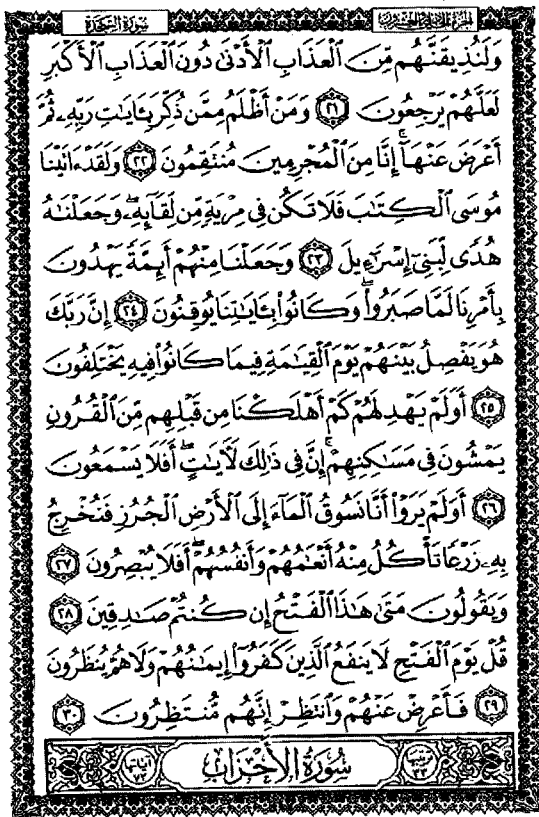 سُورَةُ السَّجْدَةِ
وَلَنُذِيقَنَّهُم مِّنَ ٱلْعَذَابِ ٱلْأَدْنَىٰ دُونَ ٱلْعَذَابِ ٱلْأَكْبَرِ
لَعَلَّهُمْ يَرْجِعُونَ ٢١ وَمَنْ أَظْلَمُ مِمَّن ذُكِّرَ بِـَٔايَـٰتِ رَبِّهِۦ ثُمَّ
أَعْرَضَ عَنْهَآ ۚ إِنَّا مِنَ ٱلْمُجْرِمِينَ مُنتَقِمُونَ ٢٢ وَلَقَدْ ءَاتَيْنَا
مُوسَى ٱلْكِتَـٰبَ فَلَا تَكُن فِى مِرْيَةٍ مِّن لِّقَآئِهِۦ ۖ وَجَعَلْنَـٰهُ
هُدًى لِّبَنِىٓ إِسْرَٰٓءِيلَ ٢٣ وَجَعَلْنَا مِنْهُمْ أَئِمَّةً يَهْدُونَ
بِأَمْرِنَا لَمَّا صَبَرُوا۟ ۖ وَكَانُوا۟ بِـَٔايَـٰتِنَا يُوقِنُونَ ٢٤ إِنَّ رَبَّكَ
هُوَ يَفْصِلُ بَيْنَهُمْ يَوْمَ ٱلْقِيَـٰمَةِ فِيمَا كَانُوا۟ فِيهِ يَخْتَلِفُونَ
٢٥ أَوَلَمْ يَهْدِ لَهُمْ كَمْ أَهْلَكْنَا مِن قَبْلِهِم مِّنَ ٱلْقُرُونِ
يَمْشُونَ فِى مَسَـٰكِنِهِمْ ۚ إِنَّ فِى ذَٰلِكَ لَـَٔايَـٰتٍ ۖ أَفَلَا يَسْمَعُونَ
٢٦ أَوَلَمْ يَرَوْا۟ أَنَّا نَسُوقُ ٱلْمَآءَ إِلَى ٱلْأَرْضِ ٱلْجُرُزِ فَنُخْرِجُ
بِهِۦ زَرْعًا تَأْكُلُ مِنْهُ أَنْعَـٰمُهُمْ وَأَنفُسُهُمْ ۖ أَفَلَا يُبْصِرُونَ ٢٧
وَيَقُولُونَ مَتَىٰ هَـٰذَا ٱلْفَتْحُ إِن كُنتُمْ صَـٰدِقِينَ ٢٨
قُلْ يَوْمَ ٱلْفَتْحِ لَا يَنفَعُ ٱلَّذِينَ كَفَرُوٓا۟ إِيمَـٰنُهُمْ وَلَا هُمْ يُنظَرُونَ
٢٩ فَأَعْرِضْ عَنْهُمْ وَٱنتَظِرْ إِنَّهُم مُّنتَظِرُونَ ٣٠
سُورَةُ الأَحْزَابِ